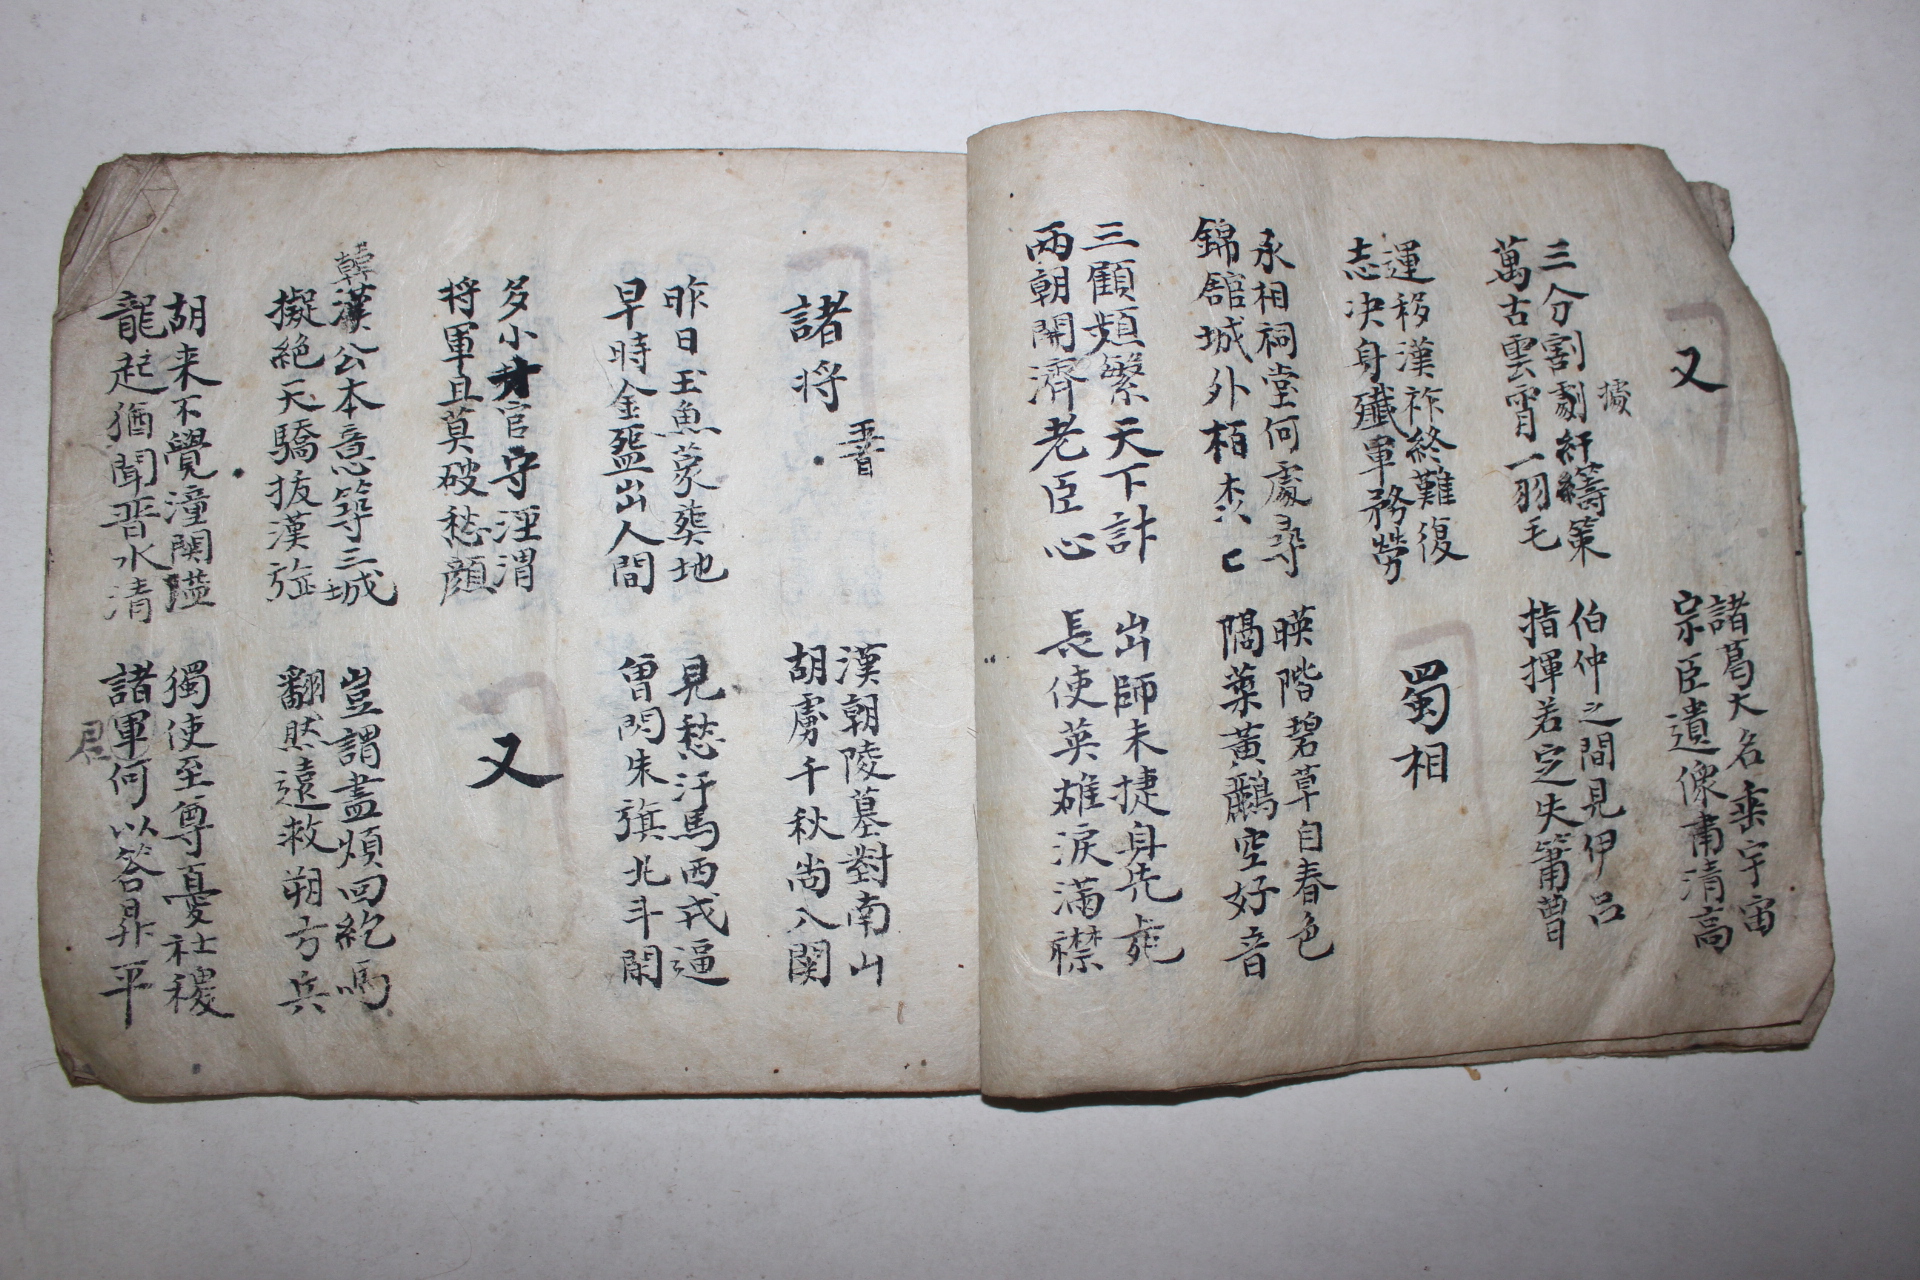 又
諸葛大名垂宇宙
宗臣遺像肅清高
三分割劇紆籌策
據
萬古雲霄一羽毛
伯仲之間見伊呂
指揮若定失蕭曹
運移漢祚終難復
志决身殲軍務勞
蜀相
丞相祠堂何處尋
錦舘城外栢森
暎階碧草自春色
隔葉黃鸝空好音
三顧頻繁天下計
兩朝開濟老臣心
出師未捷身先死
長使英雄淚滿襟
諸將
漢朝陵墓對南山
胡虜千秋尚入関
昨日玉魚蒙葬地
早時金盌出人間
見愁汗馬西戎逼
曾閃朱旗北斗閑
多小才官守涇渭
將軍且莫破愁顔
又
韓
漢公本意築三城
擬絶天驕拔漢旌
豈謂盡煩回紇馬
翻然遠救朔方兵
胡来不覺潼関隘
龍起猶聞晋水清
獨使至尊憂社稷
諸軍何以答昇平
君